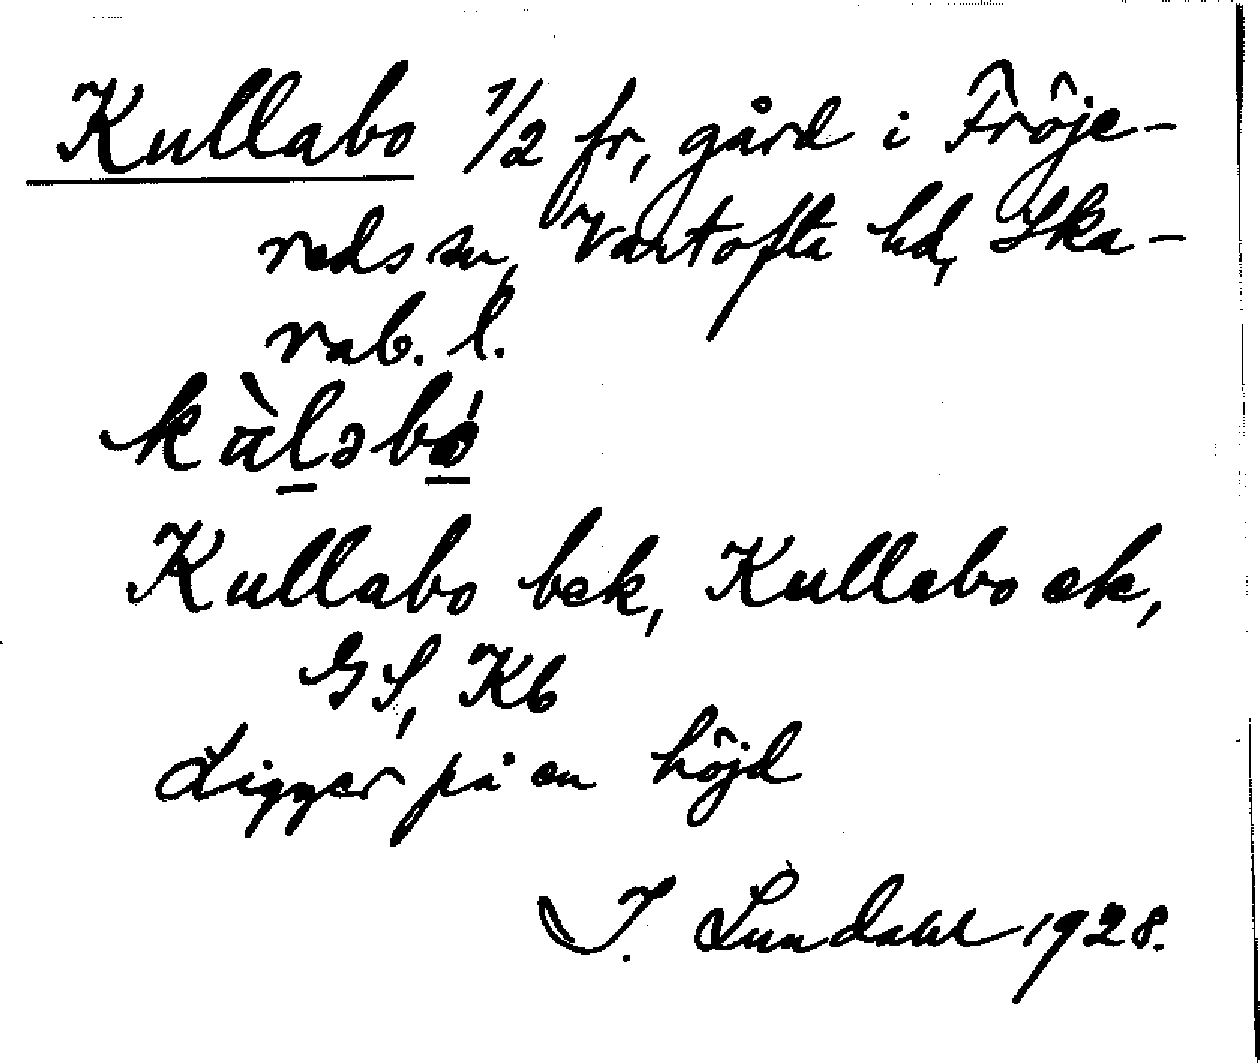 Kullabo 1/2 fr, gård i Fröje-
reds sn, Vartofta hd, Ska-
rab. l.
kàləbó
Kullabo bek, Kullebo ek,
GS, Kb
Ligger på en höjd
I. Lundahl 1928.